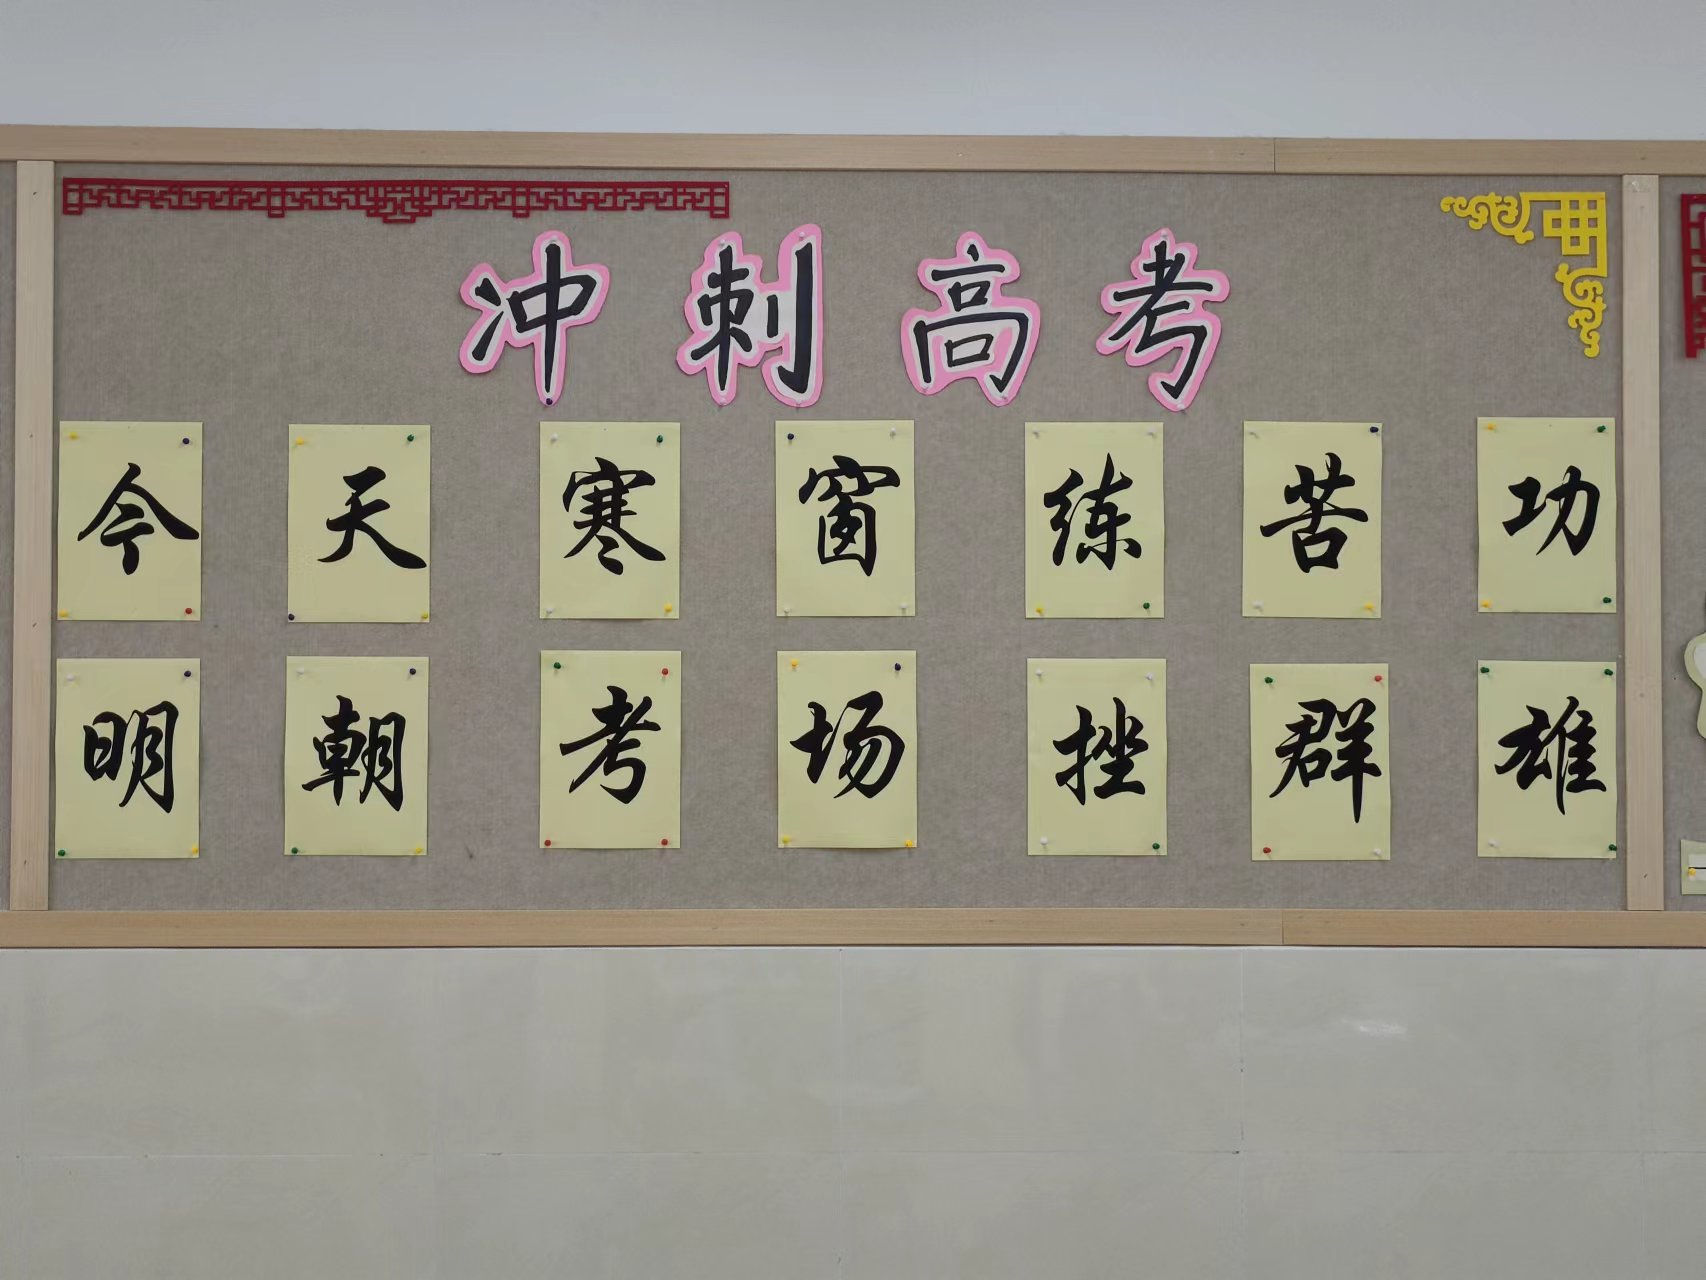 冲刺高考
今天寒窗练苦功
明朝考场挫群雄